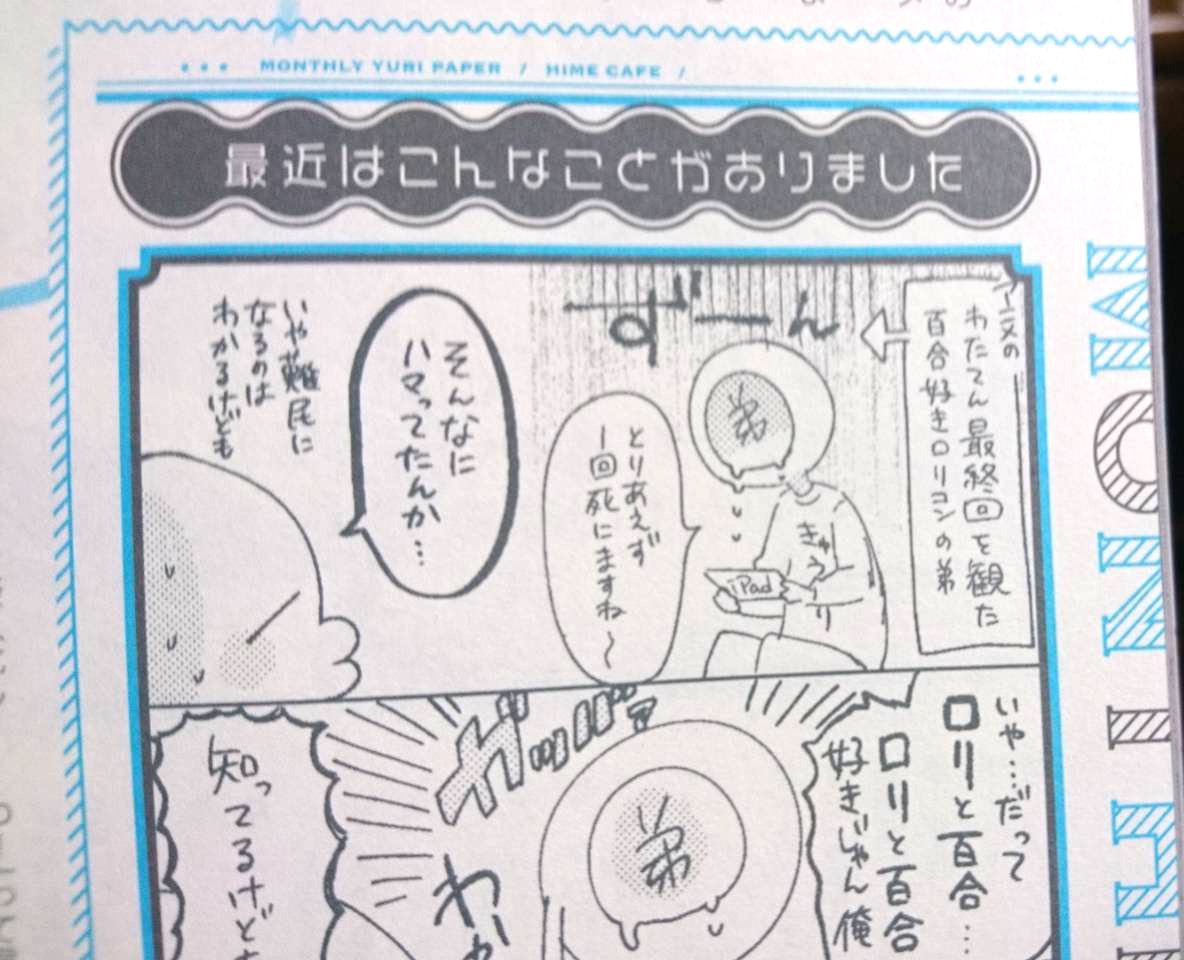 MONTHLY YURI PAPER / HIME CAFE /
最近はこんなことがありました
わたてん最終回を観た
百合好きロリコンの弟
ずーん
弟
とりあえず
一回死にますね〜
きゅうり
iPad
そんなに
ハマってたんか…
いや難民に
なるのは
わかるけども
いや…だって
ロリと百合…
ロリと百合
好きじゃん俺
ガッバ
弟
わか
知ってるけど
MONTH